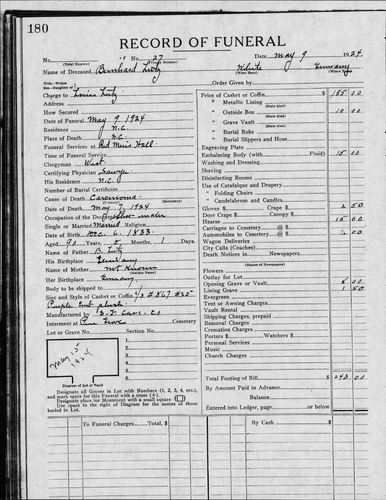 180
RECORD OF FUNERAL
No. 27 Date May 9 1924
(Total Number) (Yearly Number)
Name of Deceased Bernhard Lutz White Germany
(What Race) (Where Born)
Charge to Louis Lutz Order Given by
Address Price of Casket or Coffin $ 155 00
How Secured " Metallic Lining
Date of Funeral May 9, 1924 " Outside Box 10 00
Residence N.C. " Grave Vault
Place of Death N.C. " Burial Robe
Funeral Services at Red Mens Hall " Burial Slippers and Hose
Time of Funeral Service Engraving Plate
Clergyman West Embalming Body (with Fluid) 15 00
Certifying Physician Sawyer Washing and Dressing
His Residence N.C. Shaving
Number of Burial Certificate Disinfecting Rooms
Cause of Death Carcinoma Use of Catafalque and Drapery
Date of Death May 7, 1924 " Folding Chairs
Occupation of the Deceased " Candelabrum and Candles
Single or Married Married Religion Gloves $ Crape $ 2 50
Date of Birth Dec. 6, 1833 Door Crape Canopy $
Aged 90 Years 5 Months 1 Days Hearse 10 00
Name of Father B. Lutz Carriages to Cemetery @ $
His Birthplace Germany Automobiles to Cemetery @ $
Name of Mother Not Known Wagon Deliveries
(Maiden Name) City Calls (Coaches)
Her Birthplace Germany Death Notices in Newspapers
Body to be shipped to (Names of Newspapers)
Size and Style of Casket or Coffin Flowers
Outlay for Lot
Manufactured by Opening Grave or Vault 8 00
Interment at Cemetery Lining Grave 1 50
Lot or Grave No. Section No. Evergreen
Tent or Awning Charges
Vault Rental
Shipping Charges, prepaid
Removal Charges
Cremation Charges
Porters $ Watchers $
Personal Services
Music
Church Charges
Diagram of Lot or Vault
Designate all Graves in Lot with Numbers (1, 2, 3, 4, etc.),
and mark space for this Funeral with a cross (+).
Designate place for Monument with a small square
Use space to right of Diagram for the names of those
buried in Lot.
Total Footing of Bill $
By Amount Paid in Advance
Balance
Entered into Ledger, page or below
To Funeral Charges By Cash $